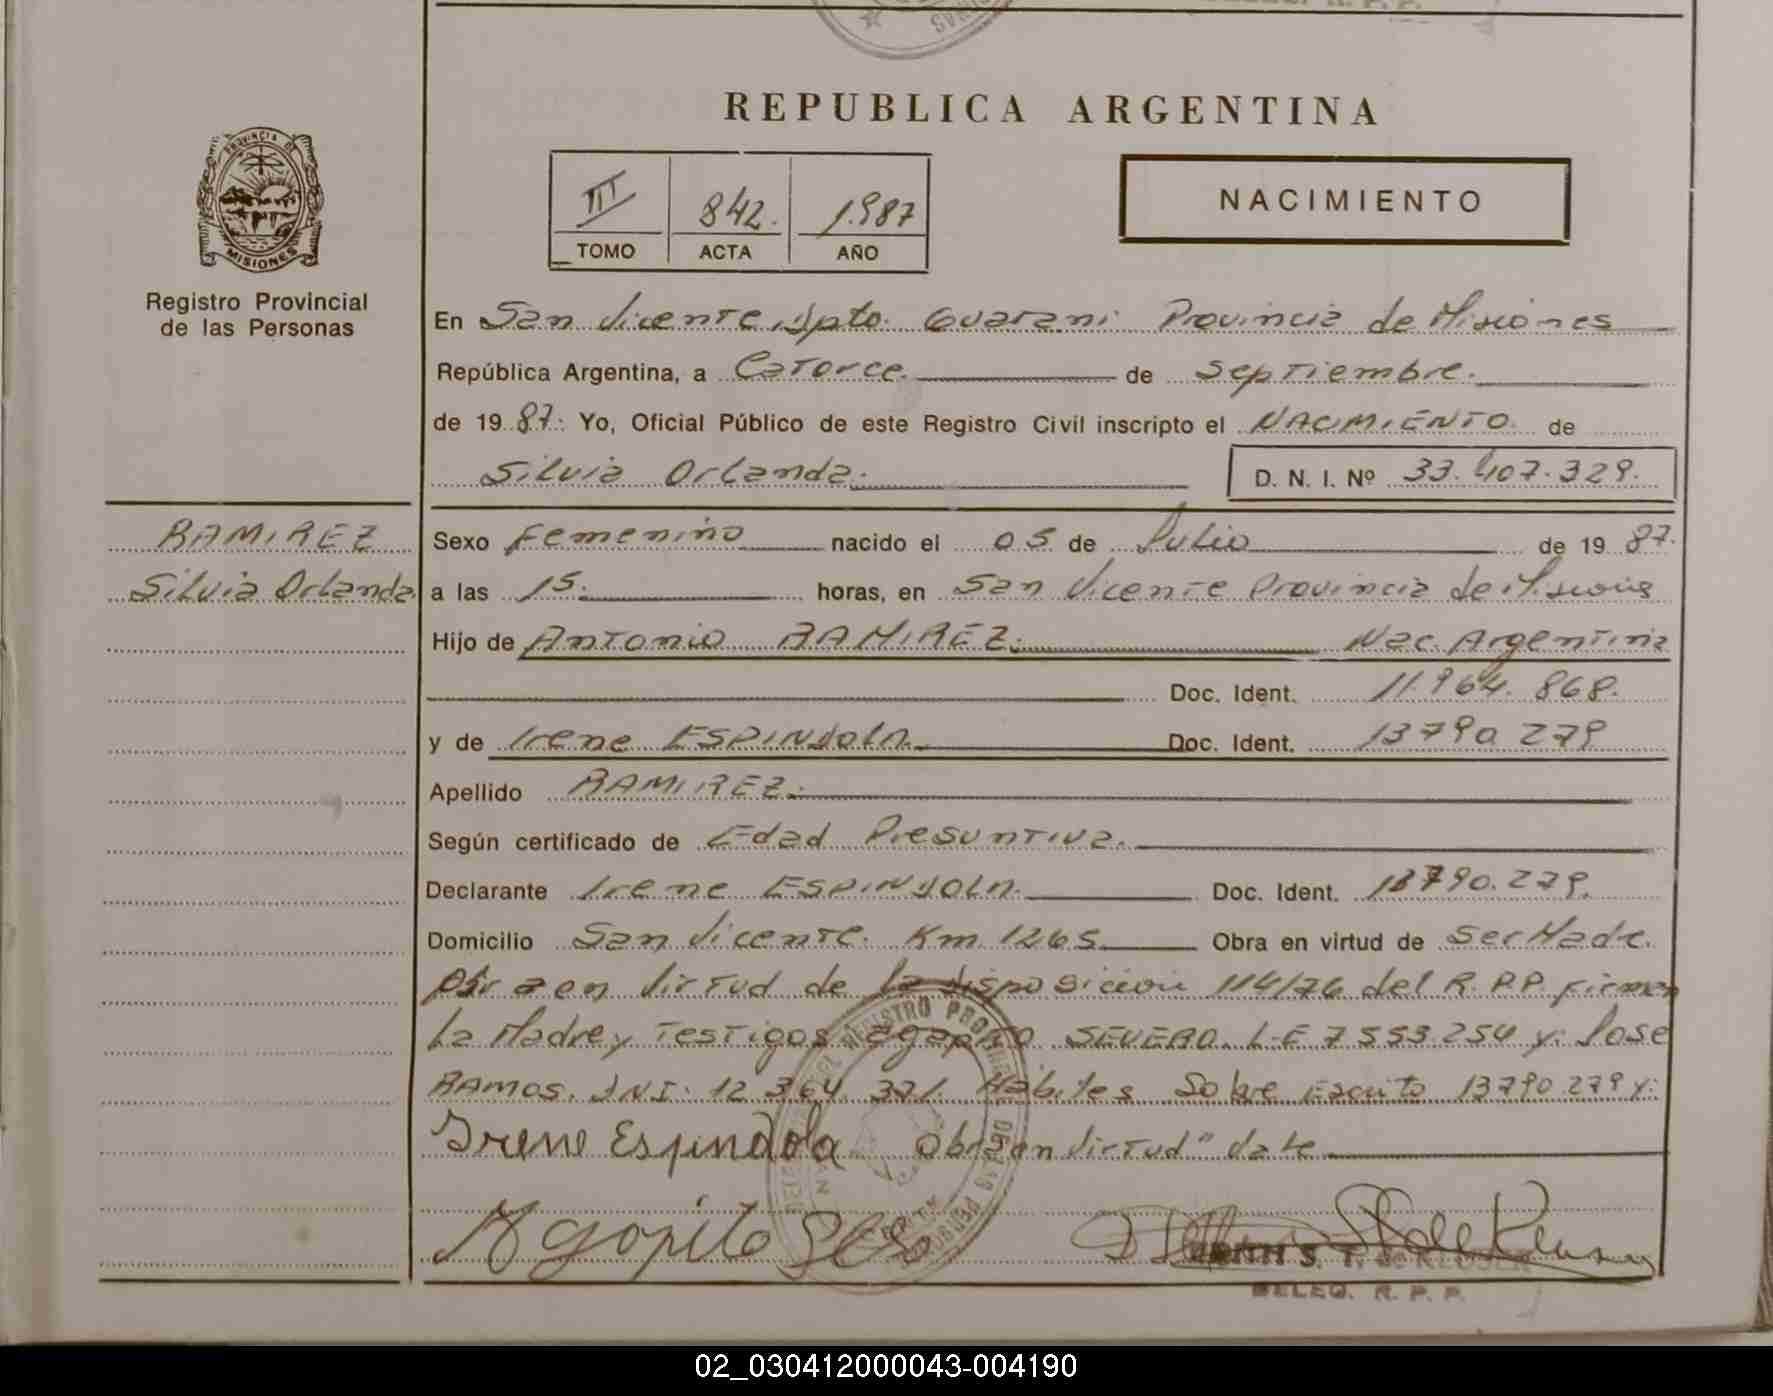 REPUBLICA ARGENTINA
PROVINCIA DE
MISIONES
Registro Provincial
de las Personas
III 842. 1.987
TOMO ACTA AÑO
NACIMIENTO
En San Vicente, Dpto. Guarani Provincia de Misiones
República Argentina, a Catorce. de Septiembre.
de 19 87. Yo, Oficial Público de este Registro Civil inscripto el NACIMIENTO de
Silvia Orlanda. D. N. I. Nº 33.407.329.
RAMIREZ
Silvia Orlanda
Sexo Femenino nacido el 05 de Julio de 19 87.
a las 15. horas, en San Vicente Provincia de Misiones
Hijo de Antonio RAMIREZ. Nac. Argentina
Doc. Ident. 11.964.868.
y de Irene ESPINDOLA. Doc. Ident. 13790279
Apellido RAMIREZ.
Según certificado de Edad Presuntiva.
Declarante Irene ESPINDOLA. Doc. Ident. 13790.279.
Domicilio San Vicente. Km 1265 Obra en virtud de Ser Madre.
en virtud de la disposicion 114/76 del R.P.P. firman
La Madre y Testigos Agapito SEVERO. L.E 7553.254 y: Jose
RAMOS. DNI: 12.364.371. Habiles Sobre Escrito 13790.279 y:
Irene Espindola Obra en virtud" vale
Agopito
DELEG. R. P. P.
02_030412000043-004190